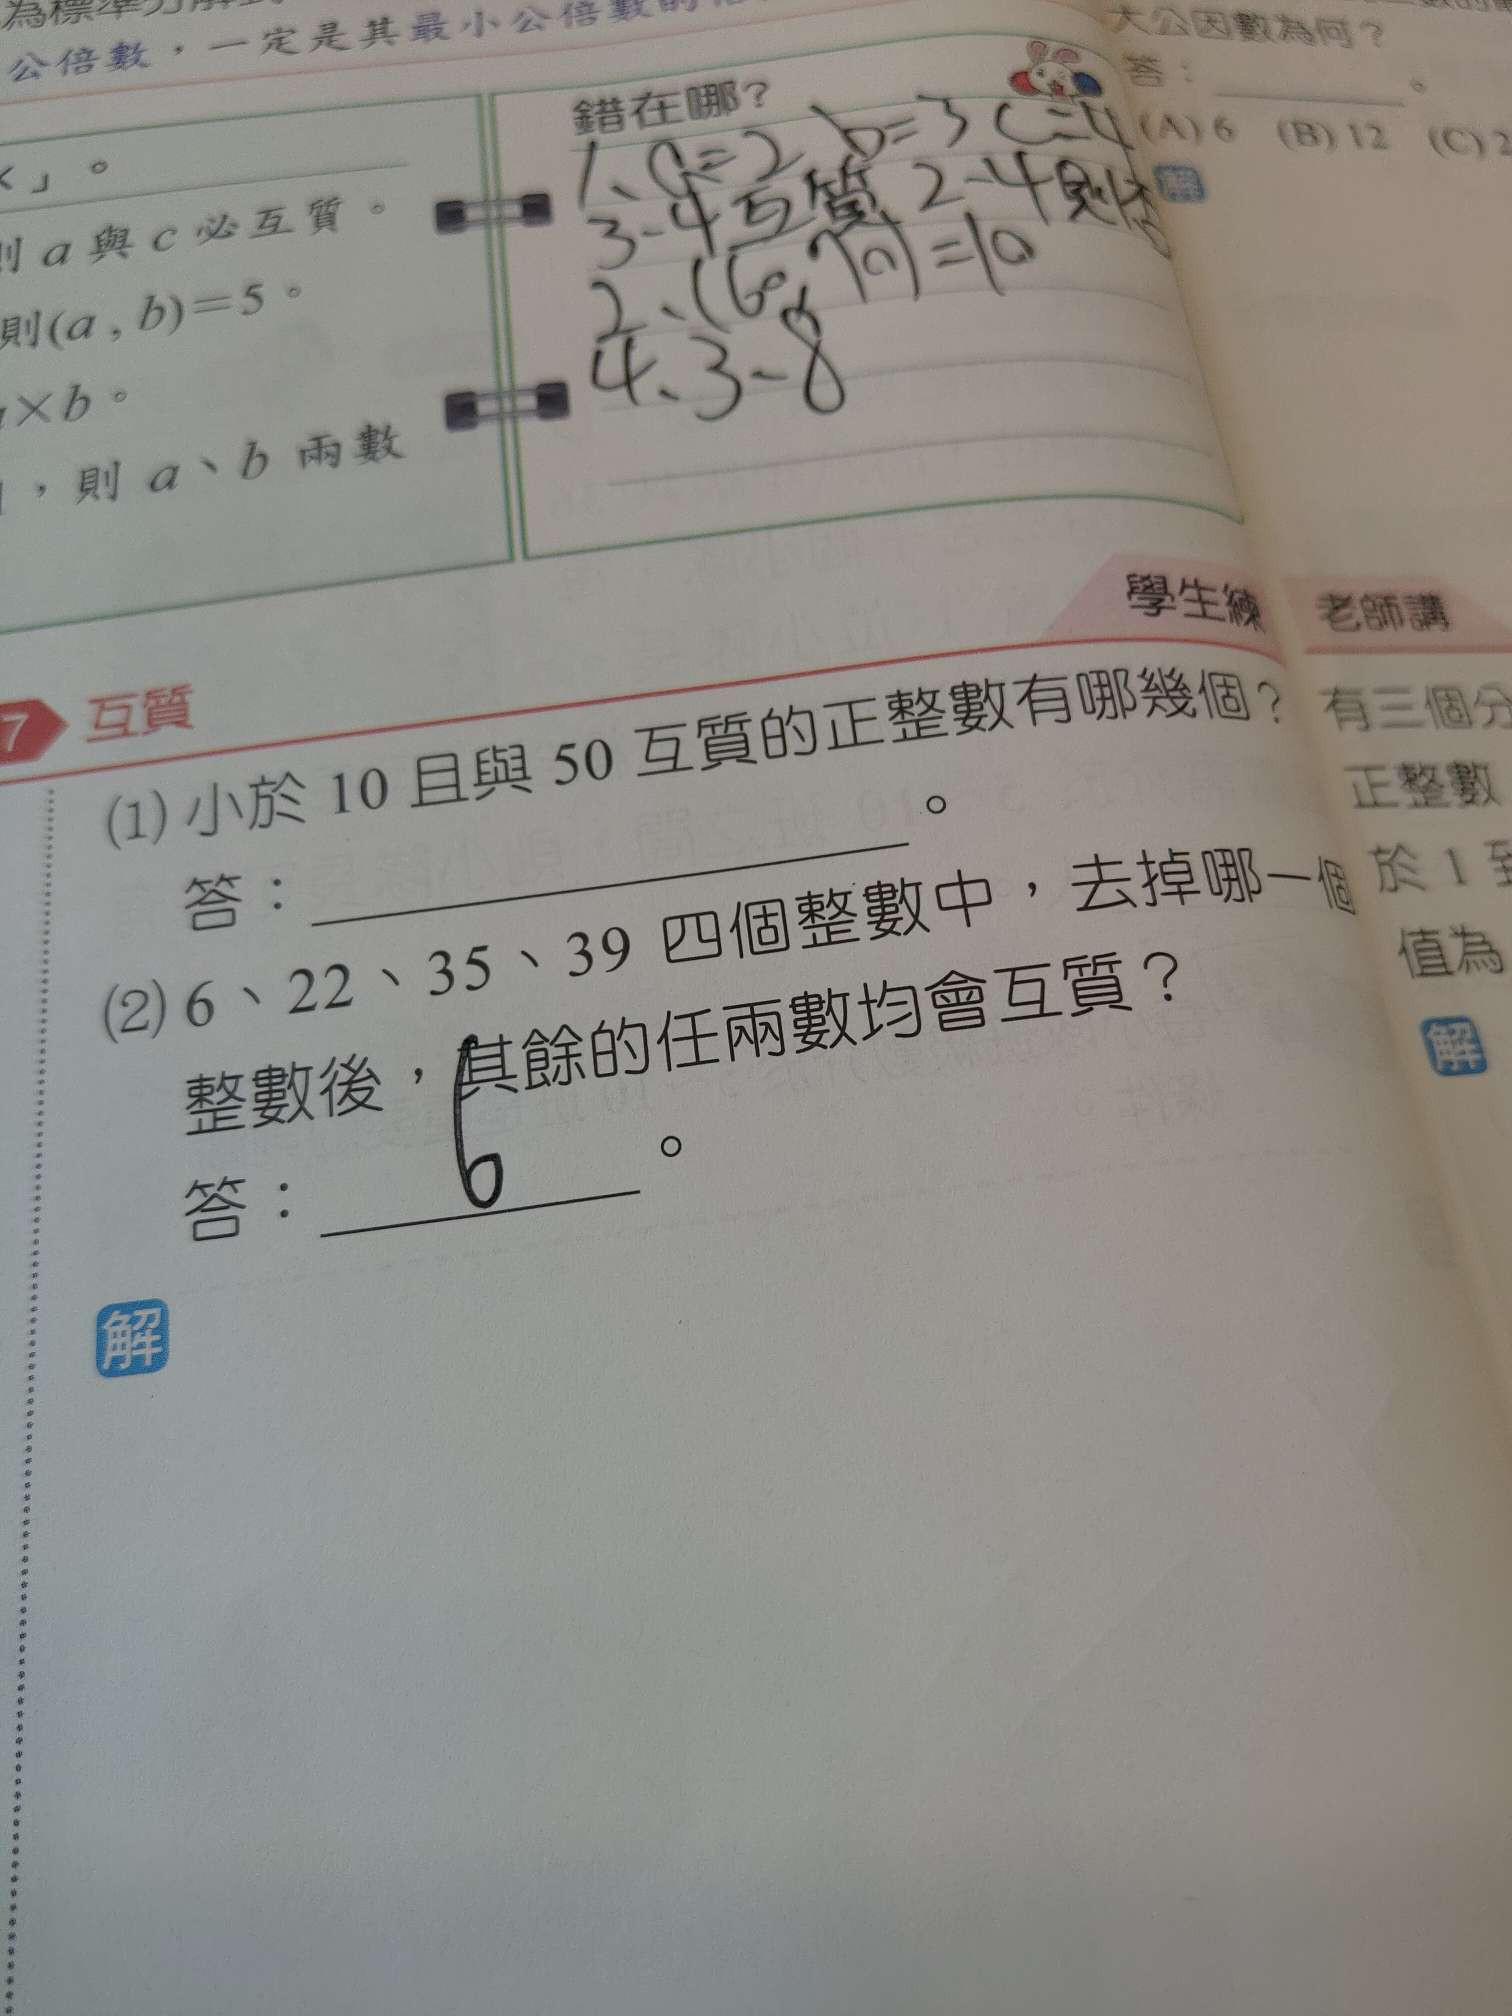 公倍數，一定是其最小公倍數的
」。
則 a 與 c 必互質。
則(a , b)=5。
×b。
，則 a、b 兩數
錯在哪?
1、a=2 b=3 c=4
3-4互質 2-4則否
2、(60,70)=10
4、3、8
大公因數為何？
答：                。
(A) 6 (B) 12 (C) 2
解
學生練
7 互質
(1) 小於 10 且與 50 互質的正整數有哪幾個？
答：                。
(2) 6、22、35、39 四個整數中，去掉哪一個
整數後，其餘的任兩數均會互質？
答： 6 。
解
老師講
有三個分
正整數
於 1 到
值為
解